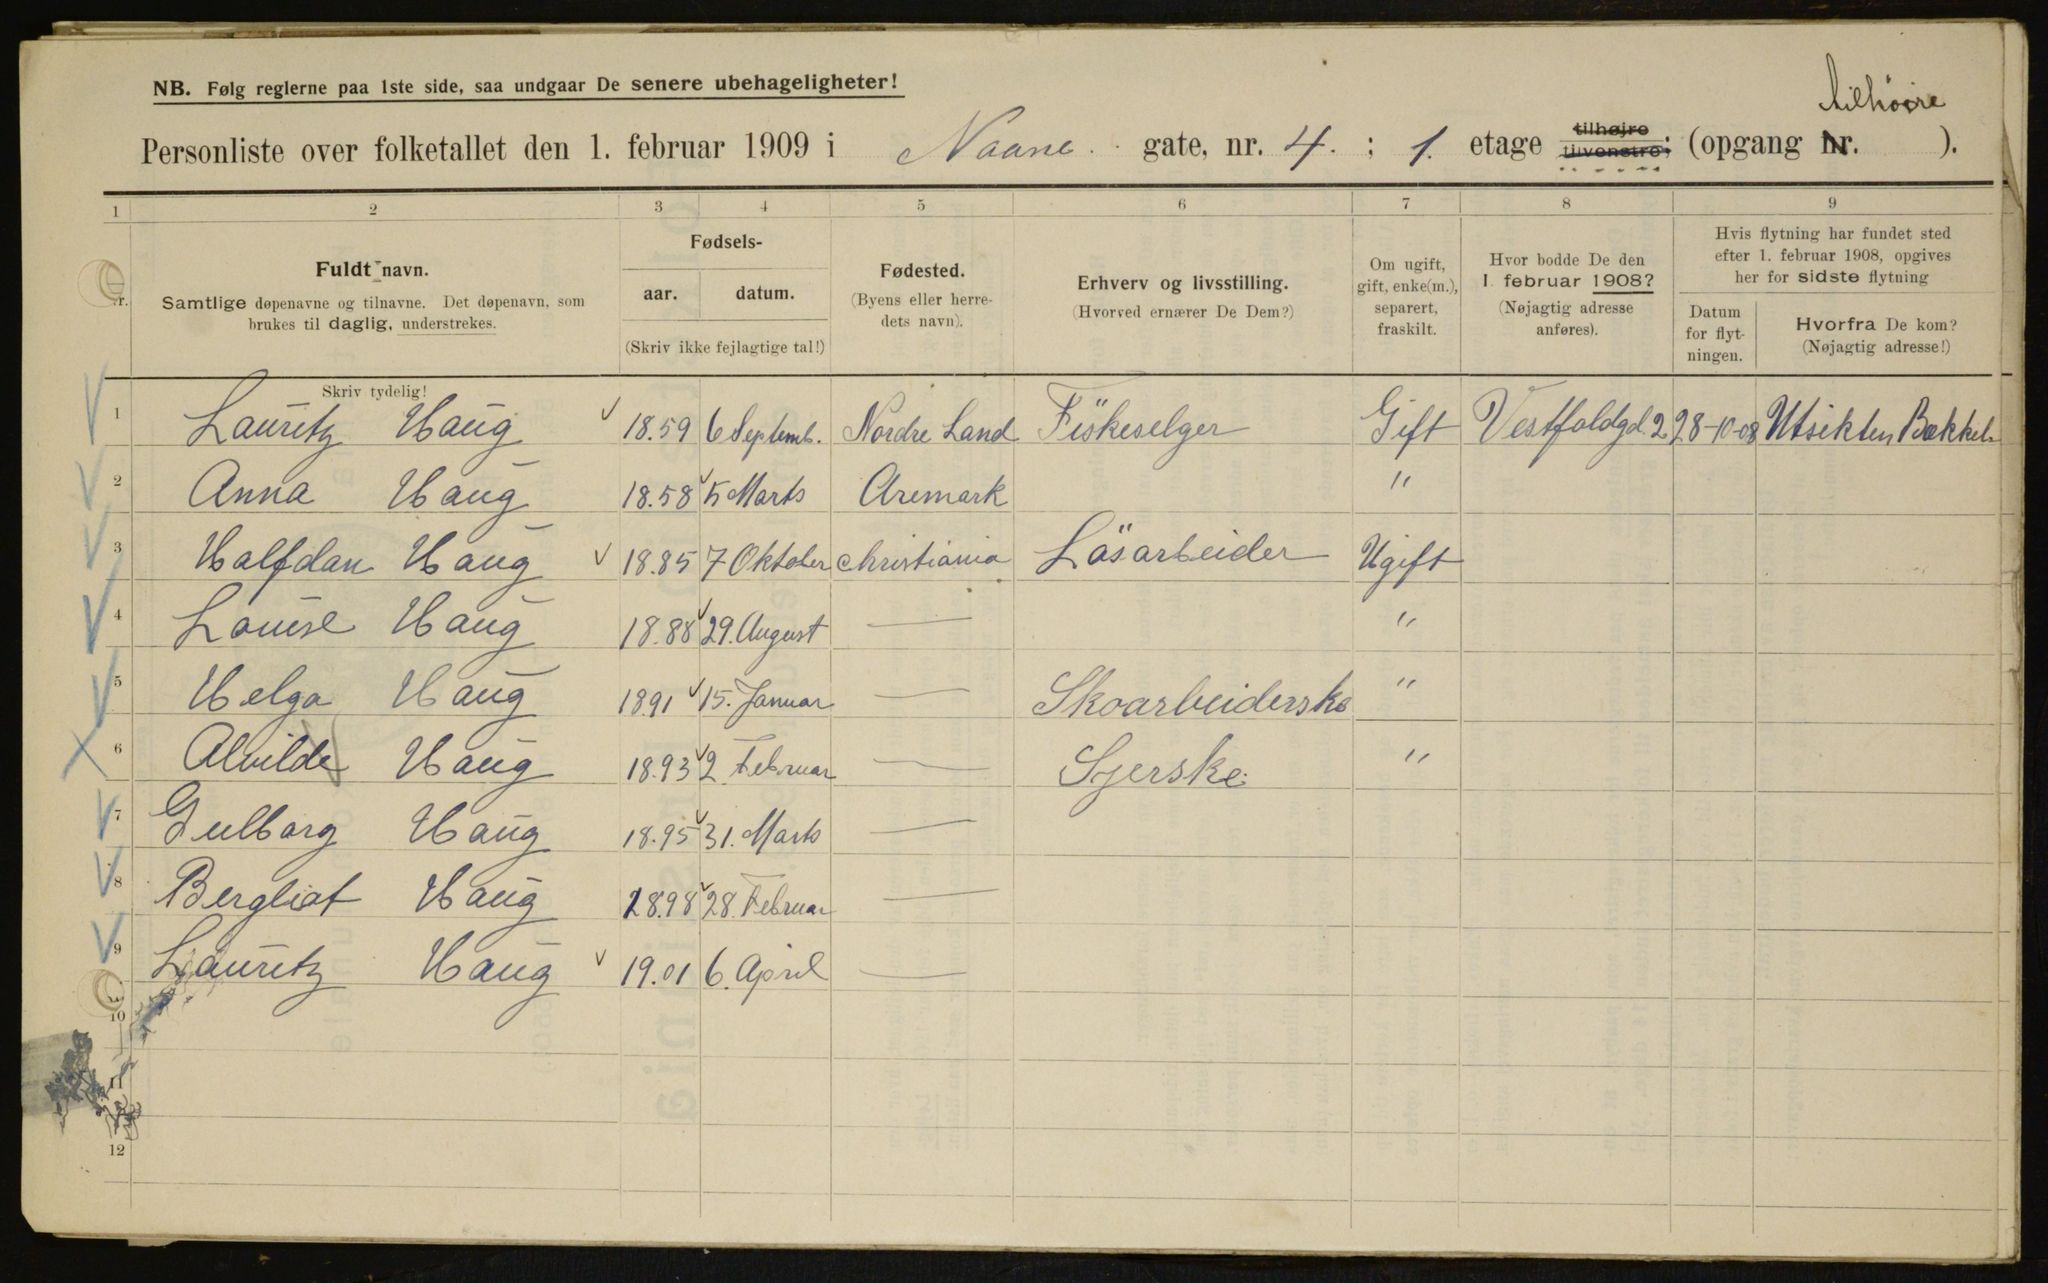 NB. Følg reglerne paa 1ste side, saa undgaar De senere ubehageligheter!
tilhöire
Personliste over folketallet den 1. februar 1909 i Naane gate, nr. 4. ; 1. etage tilhøjre tilvenstre; (opgang nr. ).
1 2 3 4 5 6 7 8 9
Nr.
Fuldt navn.
Samtlige døpenavne og tilnavne. Det døpenavn, som
brukes til daglig, understrekes.
Fødsels-
aar. datum.
(Skriv ikke fejlagtige tal!)
Fødested.
(Byens eller herre-
dets navn).
Erhverv og livsstilling.
(Hvorved ernærer De Dem?)
Om ugift,
gift, enke(m.),
separert,
fraskilt.
Hvor bodde De den
1. februar 1908?
(Nøjagtig adresse
anføres).
Hvis flytning har fundet sted
efter 1. februar 1908, opgives
her for sidste flytning
Datum
for flyt-
ningen.
Hvorfra De kom?
(Nøjagtig adresse!)
Skriv tydelig!
1 Lauritz Haug 18.59 6 Septemb. Nordre Land Fiskeselger Gift Vestfoldgd. 2 28-10-08 Utsikten Bækkel.
2 Anna Haug 18.58 5 Marts Aremark "
3 Halfdan Haug 18.85 7 Oktober Christiania Lösarbeider Ugift
4 Louise Haug 18.88 29. August — "
5 Helga Haug 1891 15. Januar — Skoarbeiderske "
6 Alvilde Haug 18.93 2. Februar — Syerske "
7 Gulborg Haug 18.95 31. Marts —
8 Bergliot Haug 1898 28. Februar —
9 Lauritz Haug 19.01 6. April —
10
11
12